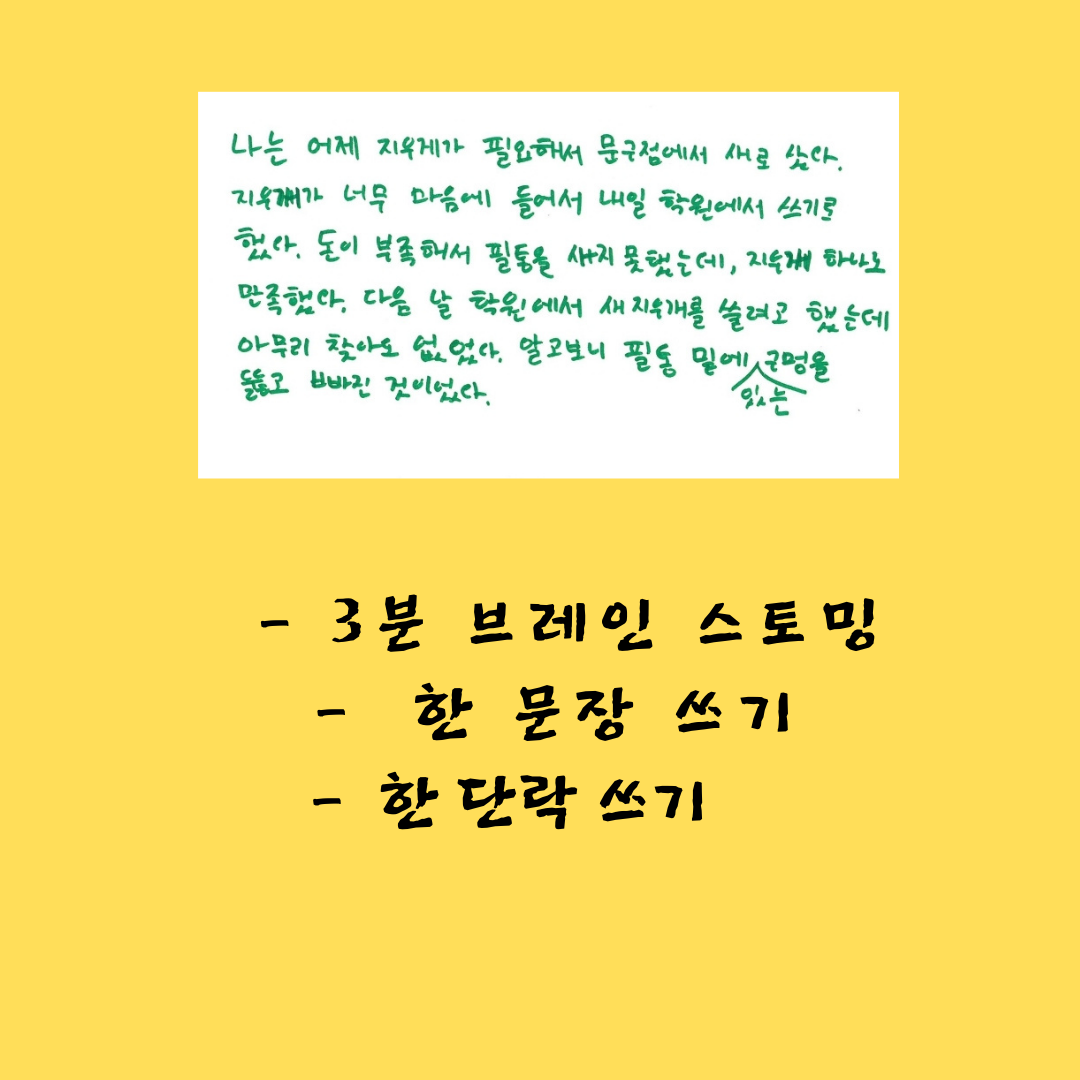 나는 어제 지우게가 필요해서 문구점에서 새로 샀다.
지우개가 너무 마음에 들어서 내일 학원에서 쓰기로
했다. 돈이 부족해서 필통을 새지 못했는데, 지우개 하나도
만족했다. 다음 날 학원에서 새 지우개를 쓸려고 했는데
아무리 찾아도 없었다. 알고보니 필통 밑에 구멍을
있는
뚫고 빠진 것이었다.
- 3분 브레인 스토밍
- 한 문장 쓰기
- 한 단락 쓰기